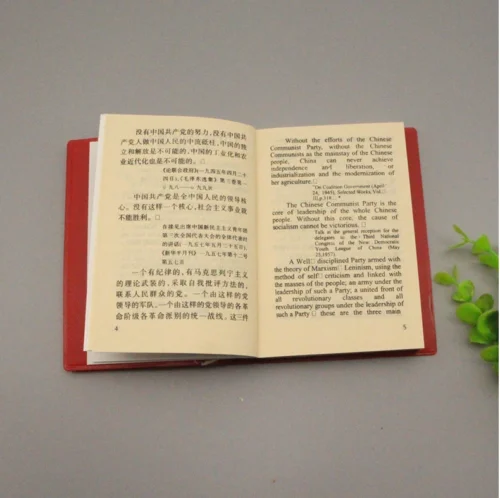 没有中国共产党的努力，没有中国共
产党人做中国人民的中流砥柱，中国的独
立和解放是不可能的，中国的工业化和农
业近代化也是不可能的。□
《论联合政府》一九四五年四月二十
四日)，《毛泽东选集》第三卷第一
〇九八——一〇九九页
中国共产党是全中国人民的领导核
心。没有这样一个核心，社会主义事业就
不能胜利。□
在接见出席中国新民主主义青年团
第三次全国代表大会的全体代表时
的讲话(一九五七年五月二十五日)，
《新华半月刊》一九五七年第十二号
第五七页
一个有纪律的，有马克思列宁主义
的理论武装的，采取自我批评方法的，
联系人民群众的党。一个由这样的党
领导的军队。一个由这样的党领导的各革
命阶级各革命派别的统一战线。这三件
4
Without the efforts of the Chinese
Communist Party, without the Chinese
Communists as the mainstay of the Chinese
people, China can never achieve
independence and liberation, or
industrialization and the modernization of
her agriculture.□
"On Coalition Government (April
24, 1945), Selected Works, Vol.
The Chinese Communist Party is the
core of leadership of the whole Chinese
people. Without this core, the cause of
socialism cannot be victorious.□
Talk at the general reception for the
delegates to the Third National
Congress of the New Democratic
Youth League of China (May
25,1957)
A Well□ disciplined Party armed with
the theory of Marxism□ Leninism, using the
method of self□ criticism and linked with
the masses of the people; an army under the
leadership of such a Party; a united front of
all revolutionary classes and all
revolutionary groups under the leadership of
such a Party □ these are the three main
5